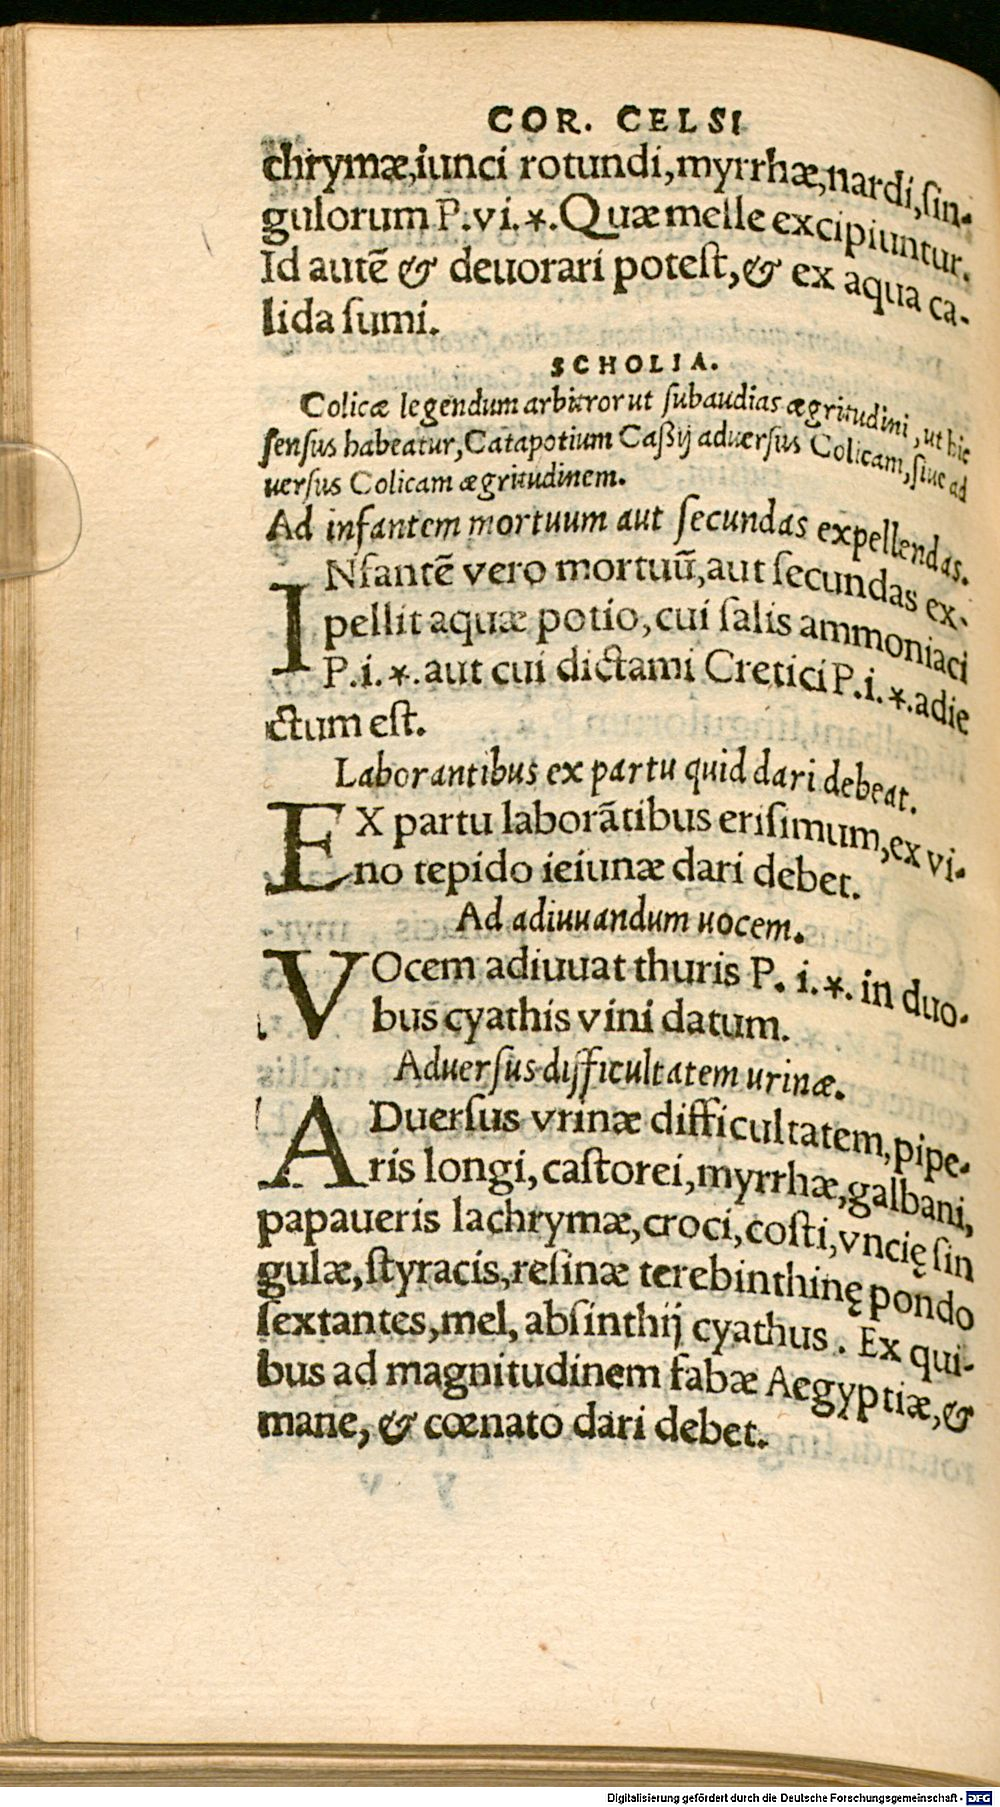 COR. CELSI
chrymæ,iunci rotundi,myrrhæ,nardi,ſin-
gulorum P.vi.*.Quæ melle excipiuntur.
Id autē & deuorari poteſt,& ex aqua ca-
lida ſumi.
SCHOLIA.
Colicæ legendum arbitror ut ſubaudias ægritudini, ut hic
ſenſus habeatur, Catapotium Caßij aduerſus Colicam, ſiue ad
uerſus Colicam ægritudinem.
Ad infantem mortuum aut ſecundas expellendas.
INfantē vero mortuū,aut ſecundas ex-
pellit aquæ potio,cui ſalis ammoniaci
P.i.*.aut cui dictami Cretici P.i.*.adie
ctum eſt.
Laborantibus ex partu quid dari debeat.
EX partu laborātibus eriſimum,ex vi-
no tepido ieiunæ dari debet.
Ad adiuuandum uocem.
VOcem adiuuat thuris P. i.*. in duo-
bus cyathis vini datum.
Aduerſus difficultatem urinæ.
ADuerſus vrinæ difficultatem,pipe-
ris longi, caſtorei,myrrhæ,galbani,
papaueris lachrymæ,croci,coſti,vncię ſin
gulæ,ſtyracis,reſinæ terebinthinę pondo
ſextantes,mel, abſinthij cyathus. Ex qui-
bus ad magnitudinem fabæ Aegyptiæ,&
mane, & cœnato dari debet.
Digitalisierung gefördert durch die Deutsche Forschungsgemeinschaft - DFG